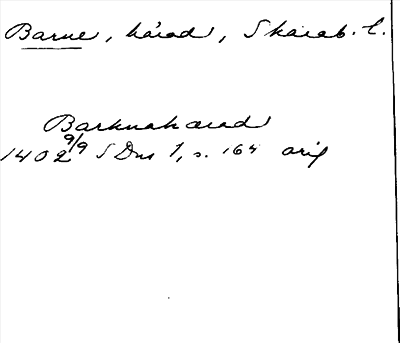 Barne, härad, Skarab. l.
Barknahærad
1402 9/9 SDns 1, s. 164 orig